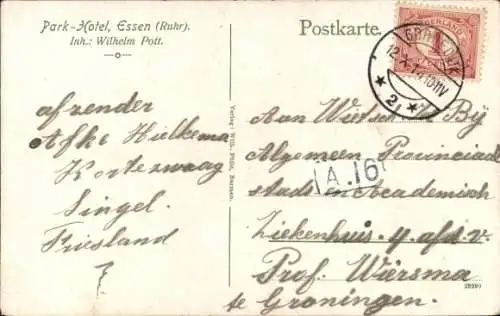 Park-Hotel, Essen (Ruhr).
Inh.: Wilhelm Pott.
Postkarte.
afzender
Afke Hielkema
Kortezwaag
Singel.
Friesland
Aan Wietsch V. Bij
Algemeen Provinciaal
stads en Academisch
Ziekenhuis. 4. afd. v.
Prof. Wiersma
te Groningen.
A.16
2